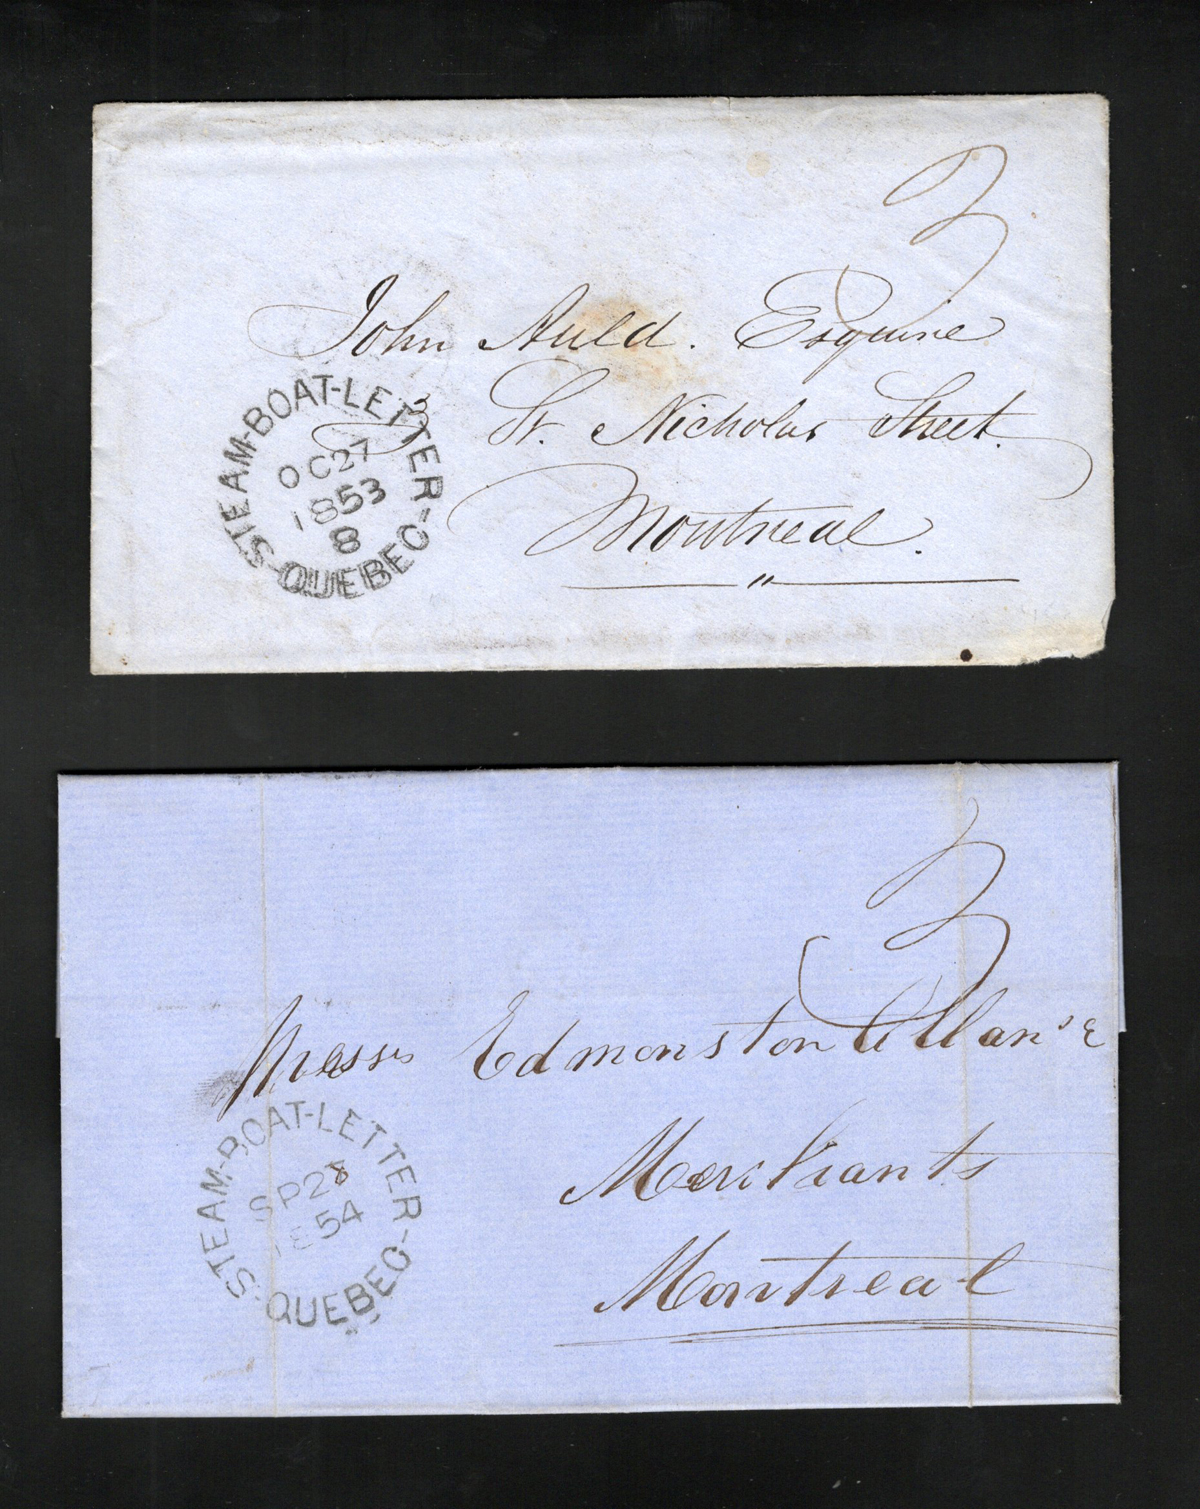 3
John Auld. Esquire
St. Nicholas Street.
Montreal.
STEAM-BOAT-LETTER-
OC27
1853
8
QUEBEC
3
Messrs Edmonston Allan &
Merchants
Montreal
STEAM-BOAT-LETTER-
SP28
1854
QUEBEC